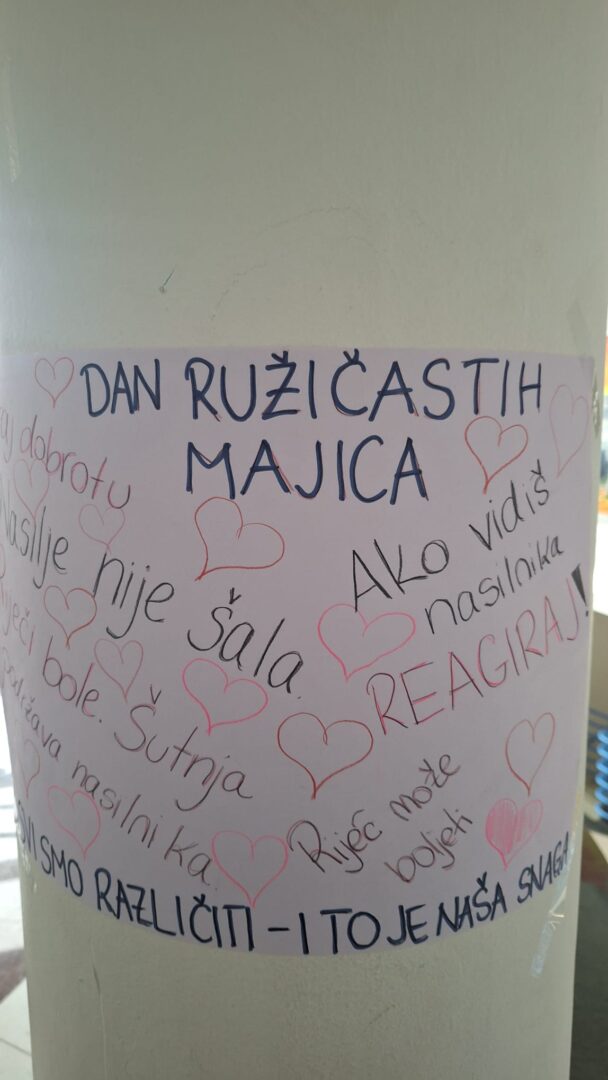 DAN RUŽIČASTIH
MAJICA
dobrotu
Nasilje nije šala.
Riječi bole. Šutnja
podržava nasilnika.
AKo vidiš
nasilnika
REAGIRAJ!
Riječ može
boljeti
SVI SMO RAZLIČITI - I TO JE NAŠA SNAGA